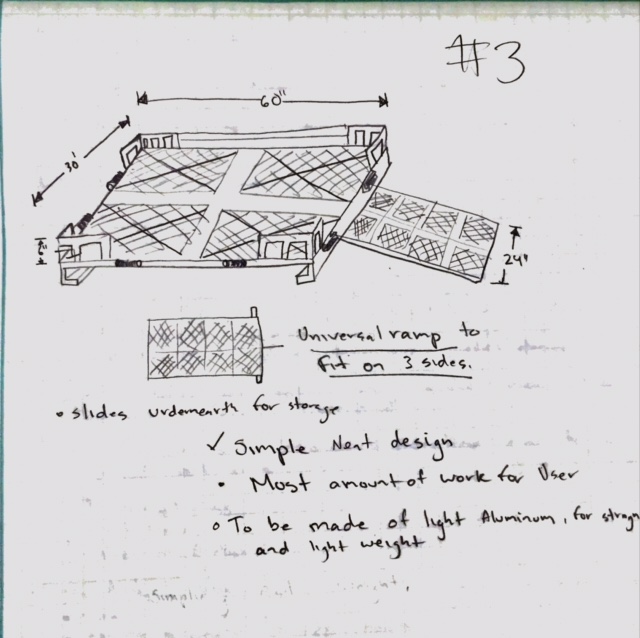 #3
60"
30'
6"
24"
Universal ramp to
fit on 3 sides.
• slides urdernearth for storage
✓ Simple Neat design
• Most amount of work for User
o To be made of light Aluminum, for
and light weight